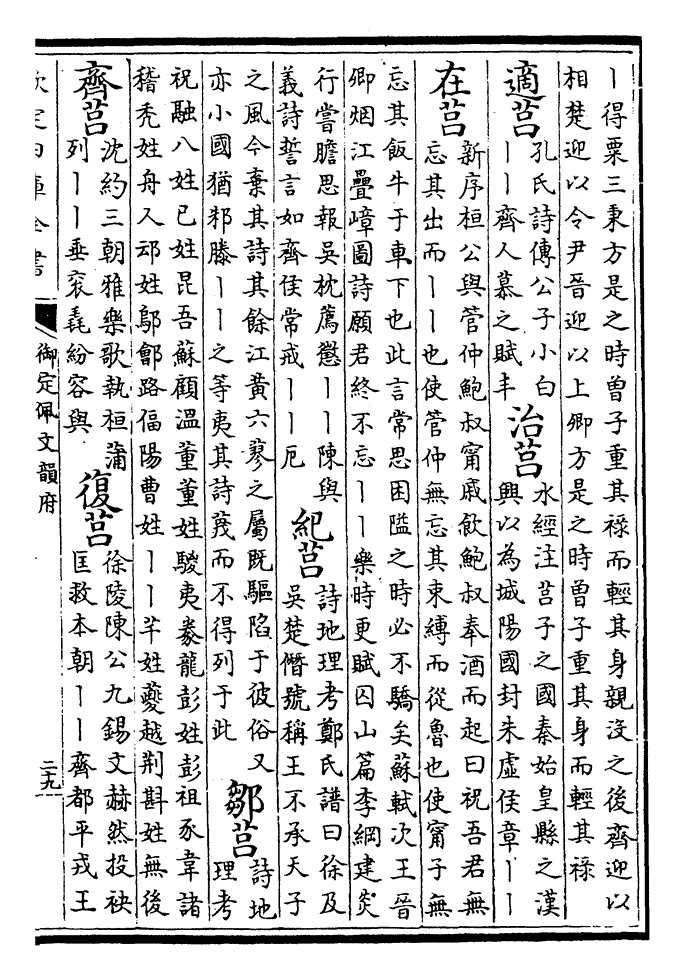 丨得粟三秉方是之時曾子重其禄而輕其身親沒之後齊迎以
相楚迎以令尹晉迎以上卿方是之時曾子重其身而輕其禄
適莒
孔氏詩傳公子小白
丨丨齊人慕之賦丰
治莒
水經注莒子之國秦始皇縣之漢
興以為城陽國封朱虛侯章丨丨
在莒
新序桓公與管仲鮑叔甯戚飲鮑叔奉酒而起曰祝吾君無
忘其出而丨丨也使管仲無忘其束縛而從魯也使甯子無
忘其飯牛于車下也此言常思困隘之時必不驕矣蘇軾次王晉
卿烟江疊嶂圖詩願君終不忘丨丨樂時更賦囚山篇李綱建炎
行嘗膽思報吳枕薦懲丨丨陳與
義詩誓言如齊侯常戒丨丨厄
紀莒
詩地理考鄭氏譜曰徐及
吳楚僭號稱王不承天子
之風今棄其詩其餘江黃六蓼之屬既驅陷于彼俗又
亦小國猶邾滕丨丨之等夷其詩蔑而不得列于此
鄒莒
詩地
理考
祝融八姓已姓昆吾蘇顧溫董董姓鬷夷豢龍彭姓彭祖豕韋諸
稽秃姓舟人邧姓鄔鄶路偪陽曹姓丨丨芊姓夔越荆斟姓無後
齊莒
沈約三朝雅樂歌執桓蒲
列丨丨垂衮毳紛容與
復莒
徐陵陳公九錫文赫然投袂
匡救本朝丨丨齊都平戎王
欽定四庫全書
御定佩文韻府
二十九